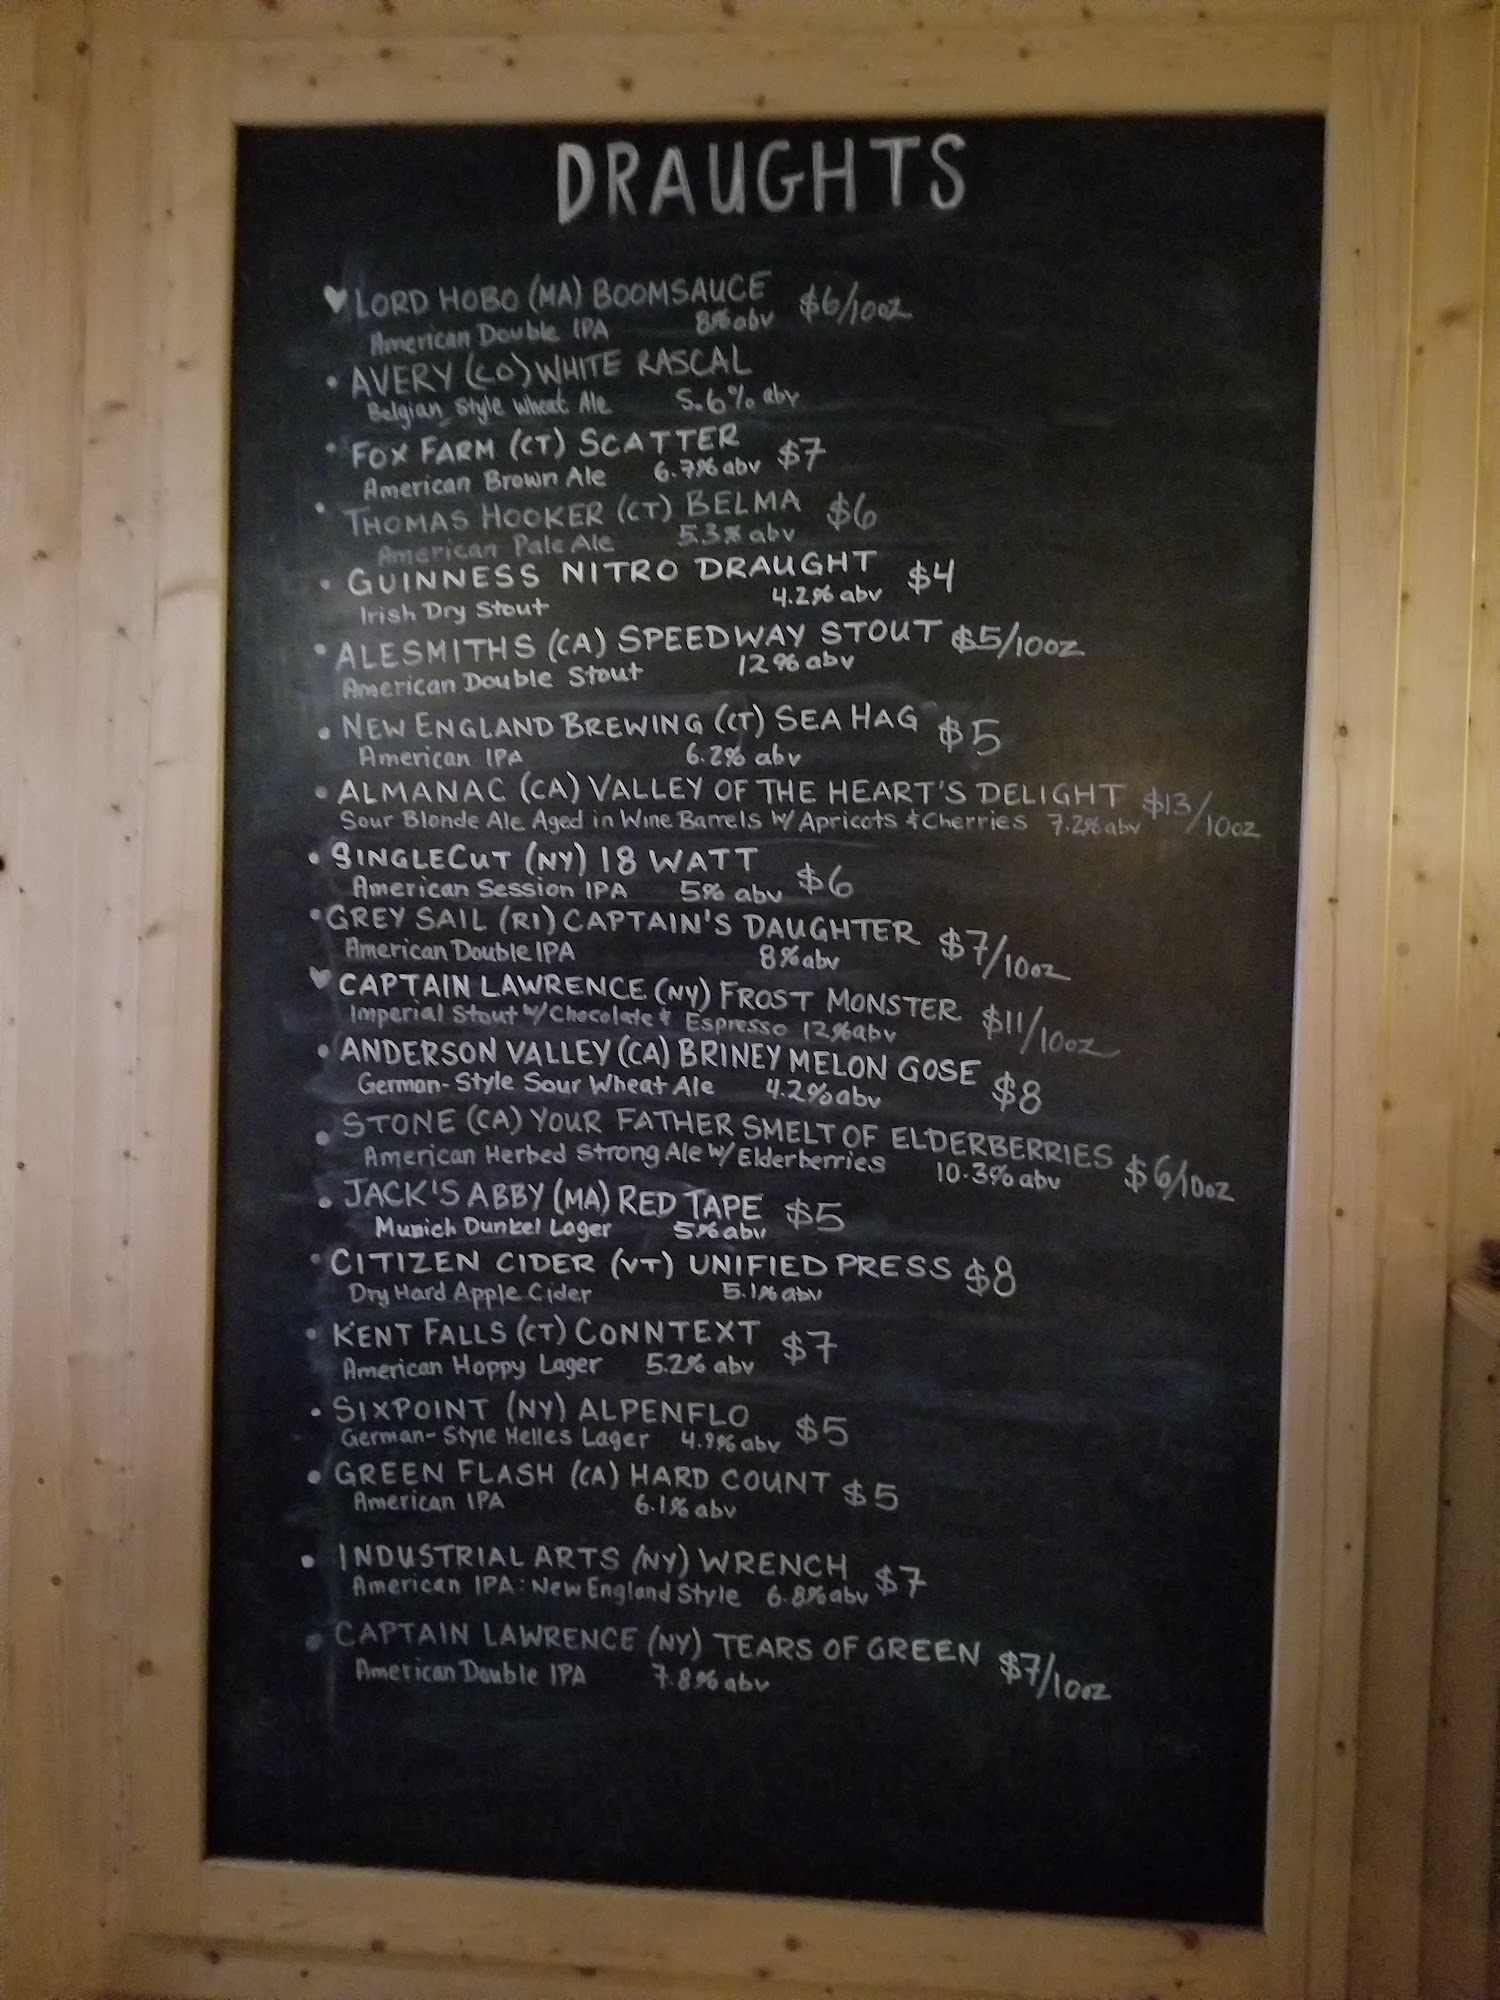 DRAUGHTS
♥ LORD HOBO (MA) BOOMSAUCE $6/10oz
American Double IPA 8% abv
• AVERY (CO) WHITE RASCAL
Belgian Style Wheat Ale 5.6% abv
• FOX FARM (CT) SCATTER $7
American Brown Ale 6.7% abv
• THOMAS HOOKER (CT) BELMA $6
American Pale Ale 5.3% abv
• GUINNESS NITRO DRAUGHT $4
Irish Dry Stout 4.2% abv
• ALESMITHS (CA) SPEEDWAY STOUT $5/10oz
American Double Stout 12% abv
• NEW ENGLAND BREWING (CT) SEA HAG $5
American IPA 6.2% abv
• ALMANAC (CA) VALLEY OF THE HEART'S DELIGHT $13/10oz
Sour Blonde Ale Aged in Wine Barrels w/ Apricots & Cherries 7.2% abv
• SINGLECUT (NY) 18 WATT $6
American Session IPA 5% abv
• GREY SAIL (RI) CAPTAIN'S DAUGHTER $7/10oz
American Double IPA 8% abv
♥ CAPTAIN LAWRENCE (NY) FROST MONSTER $11/10oz
Imperial Stout w/ Chocolate & Espresso 12% abv
• ANDERSON VALLEY (CA) BRINEY MELON GOSE $8
German-Style Sour Wheat Ale 4.2% abv
• STONE (CA) YOUR FATHER SMELT OF ELDERBERRIES $6/10oz
American Herbed Strong Ale w/ Elderberries 10.3% abv
• JACK'S ABBY (MA) RED TAPE $5
Munich Dunkel Lager 5% abv
• CITIZEN CIDER (VT) UNIFIED PRESS $8
Dry Hard Apple Cider 5.1% abv
• KENT FALLS (CT) CONNTEXT $7
American Hoppy Lager 5.2% abv
• SIXPOINT (NY) ALPENFLO $5
German-Style Helles Lager 4.9% abv
• GREEN FLASH (CA) HARD COUNT $5
American IPA 6.1% abv
• INDUSTRIAL ARTS (NY) WRENCH $7
American IPA: New England Style 6.8% abv
• CAPTAIN LAWRENCE (NY) TEARS OF GREEN $7/10oz
American Double IPA 7.8% abv